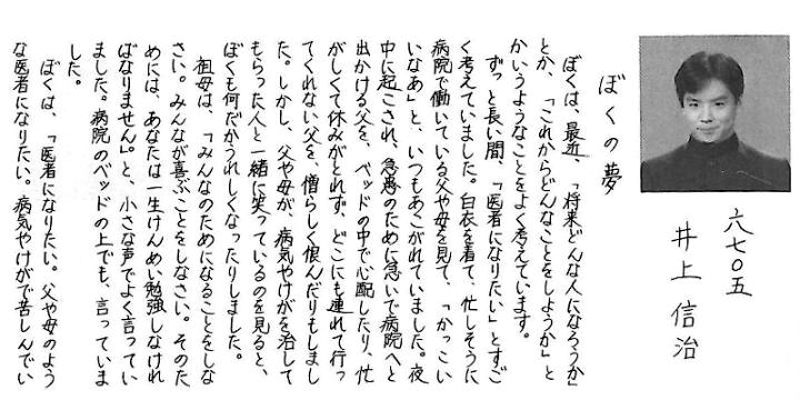 六七〇五
井上信治
ぼくの夢
ぼくは、最近、「将来どんな人になろうか」
とか、「これからどんなことをしようか」と
かいうようなことをよく考えています。
ずっと長い間、「医者になりたい」とすご
く考えていました。白衣を着て、忙しそうに
病院で働いている父や母を見て、「かっこい
いなあ」と、いつもあこがれていました。夜
中に起こされ、急患のために急いで病院へと
出かける父を、ベッドの中で心配したり、忙
がしくて休みがとれず、どこにも連れて行っ
てくれない父を、憎らしく恨んだりもしまし
た。しかし、父や母が、病気やけがを治して
もらった人と一緒に笑っているのを見ると、
ぼくも何だかうれしくなったりしました。
祖母は、「みんなのためになることをしな
さい。みんなが喜ぶことをしなさい。そのた
めには、あなたは一生けんめい勉強しなけれ
ばなりません。」と、小さな声でよく言ってい
ました。病院のベッドの上でも、言っていま
した。
ぼくは、「医者になりたい。父や母のよう
な医者になりたい。病気やけがで苦しんでい